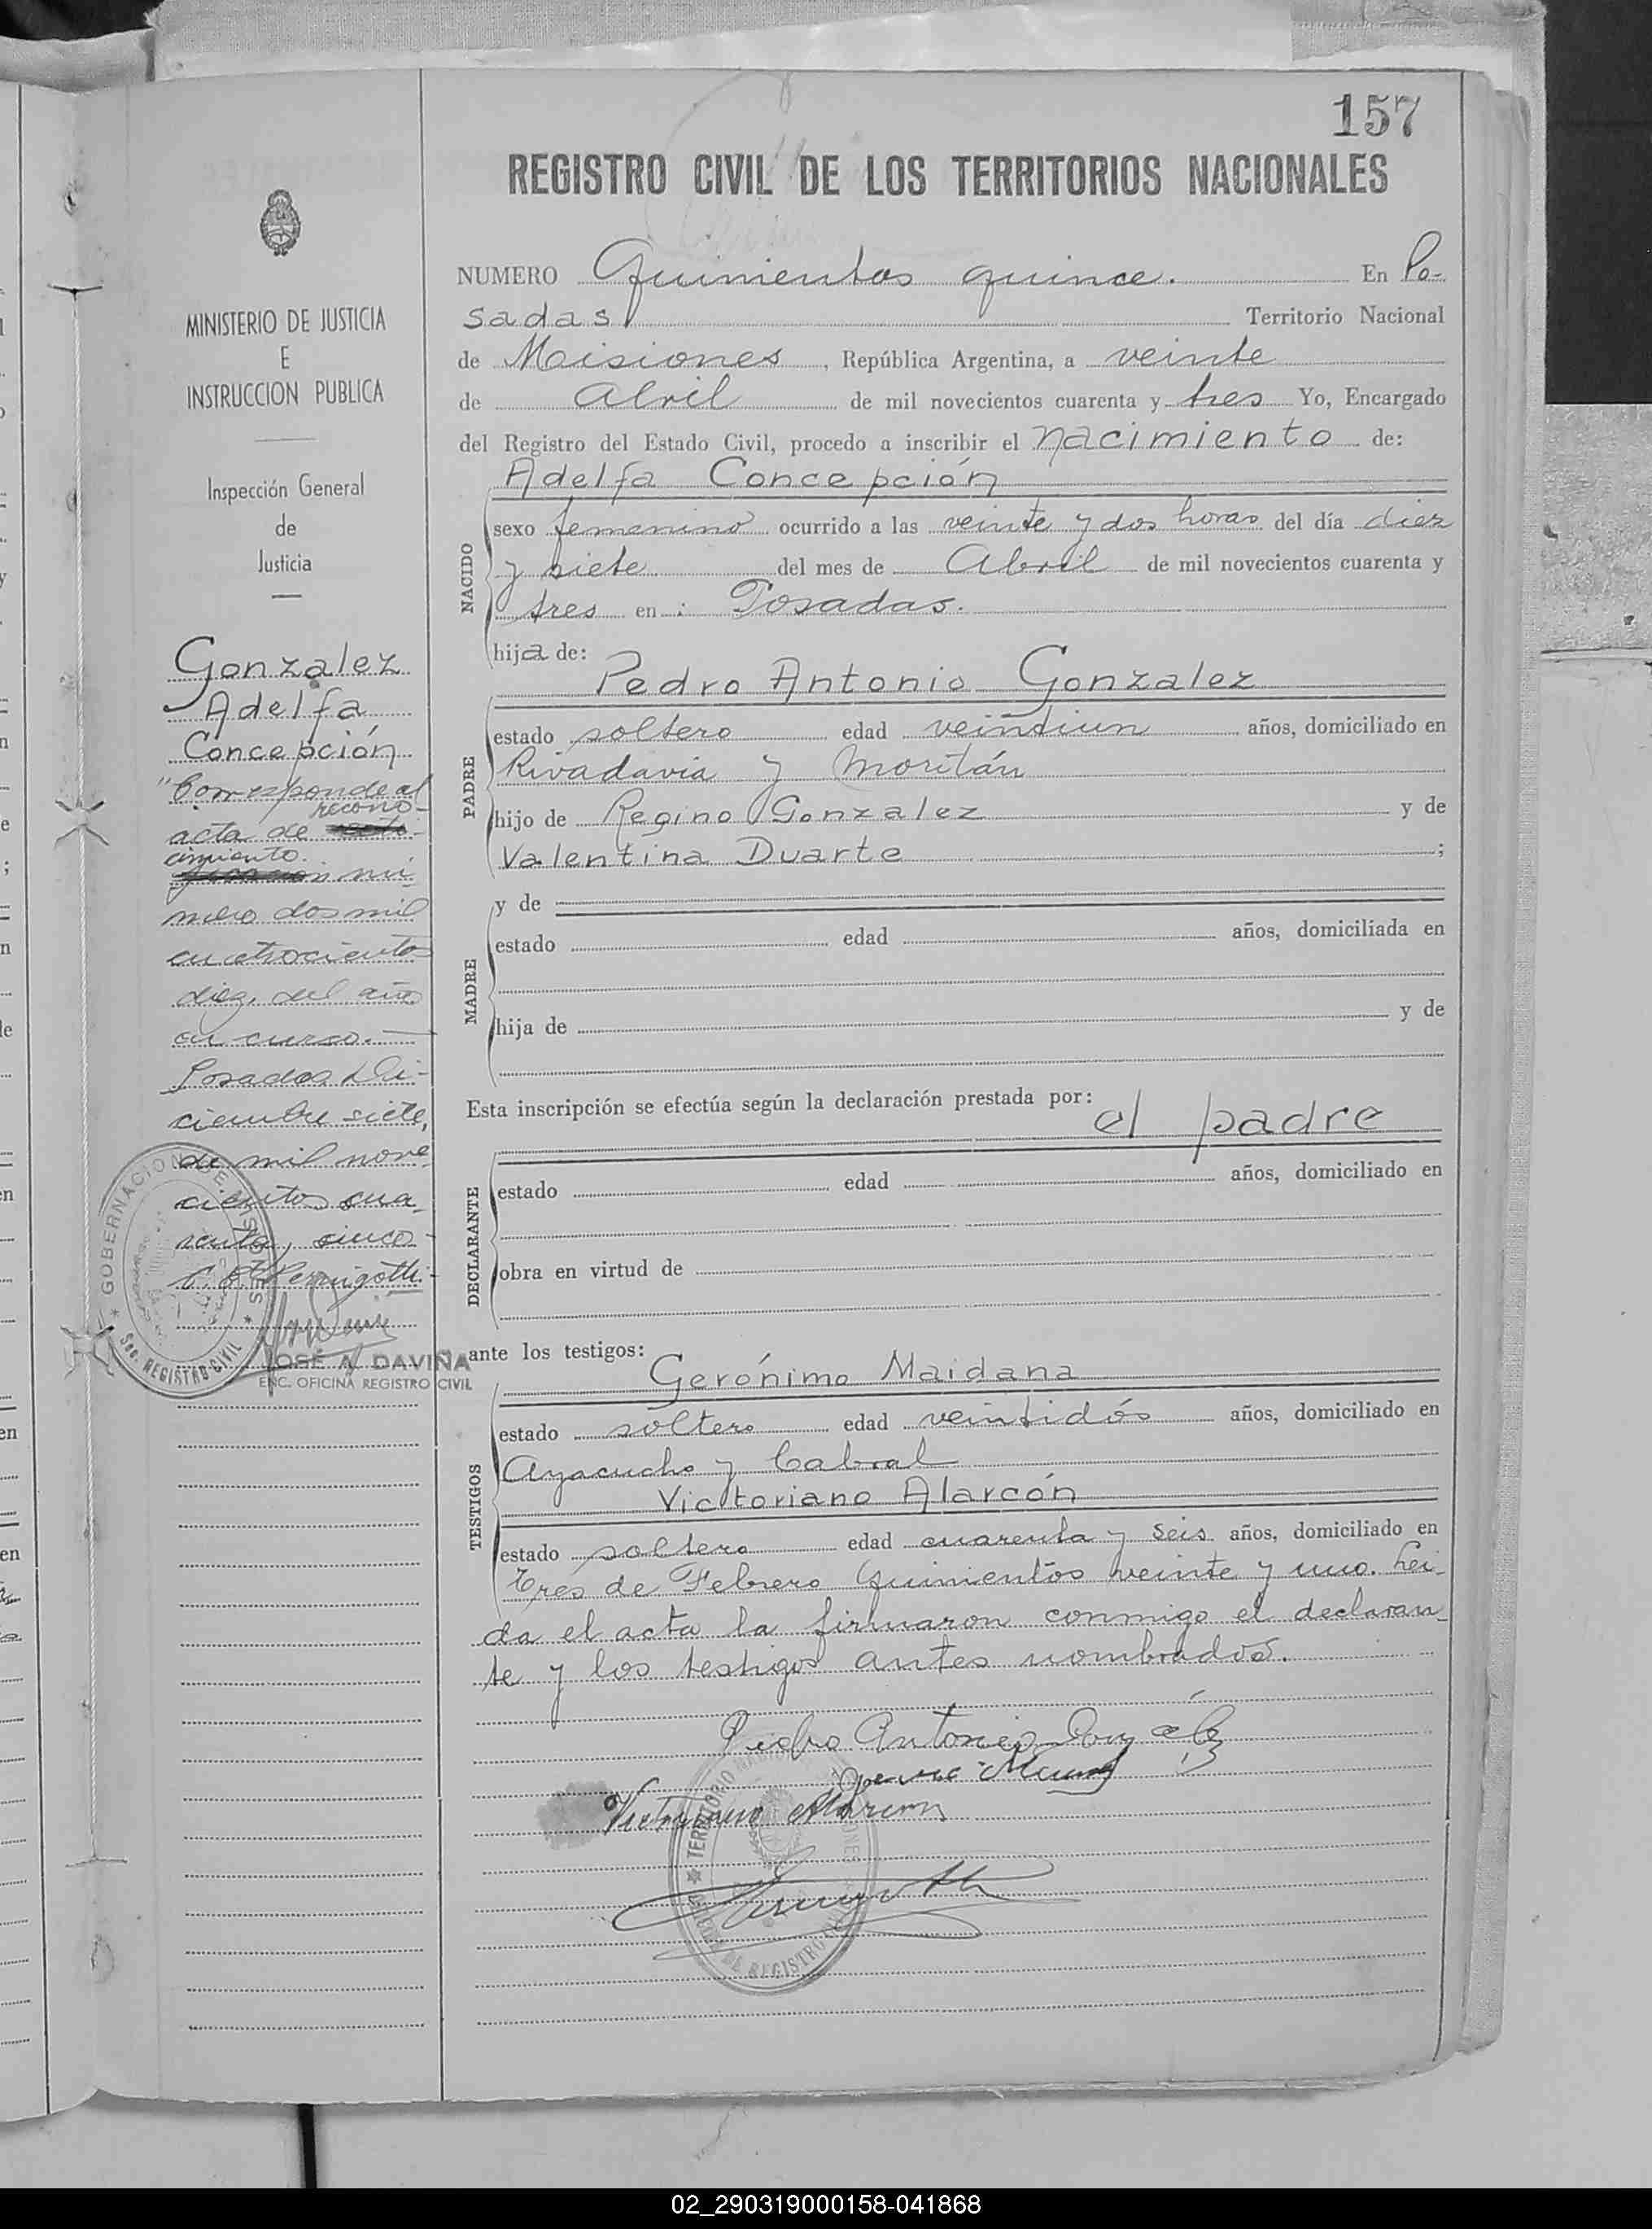 157
REGISTRO CIVIL DE LOS TERRITORIOS NACIONALES
MINISTERIO DE JUSTICIA
E
INSTRUCCION PUBLICA
Inspección General
de
Justicia
Gonzalez
Adelfa
Concepción
"Corresponde al
recono-
acta de
cimiento.
nú-
mero dos mil
cuatrocientos
diez, del año
en curso.
Posadas Di-
ciembre siete,
de mil nove-
cientos cua-
renta, cinco
Pernigotti
GOBERNACION DE MISIONES
Sec. REGISTRO CIVIL
JOSÉ A. DAVIÑA
ENC. OFICINA REGISTRO CIVIL
NUMERO Quinientos quince. En Po-
sadas Territorio Nacional
de Misiones, República Argentina, a veinte
de abril de mil novecientos cuarenta y tres Yo, Encargado
del Registro del Estado Civil, procedo a inscribir el nacimiento de:
Adelfa Concepción
NACIDO
sexo femenino ocurrido a las veinte y dos horas del día diez
y siete del mes de Abril de mil novecientos cuarenta y
tres en: Posadas.
hija de:
Pedro Antonio Gonzalez
PADRE
estado soltero edad veintiun años, domiciliado en
Rivadavia y Moritán
hijo de Regino Gonzalez y de
Valentina Duarte ;
MADRE
y de
estado edad años, domiciliada en
hija de y de
Esta inscripción se efectúa según la declaración prestada por:
el padre
DECLARANTE
estado edad años, domiciliado en
obra en virtud de
ante los testigos:
Gerónimo Maidana
TESTIGOS
estado soltero edad veintidós años, domiciliado en
Ayacucho y Cabral
Victoriano Alarcón
estado soltero edad cuarenta y seis años, domiciliado en
Tres de Febrero quinientos veinte y uno. Leí-
da el acta la firmaron conmigo el declaran-
te y los testigos antes nombrados.
Pedro Antonio Gonzalez
Victoriano Alarcon
TERRITORIO
DE REGISTRO
02_290319000158-041868